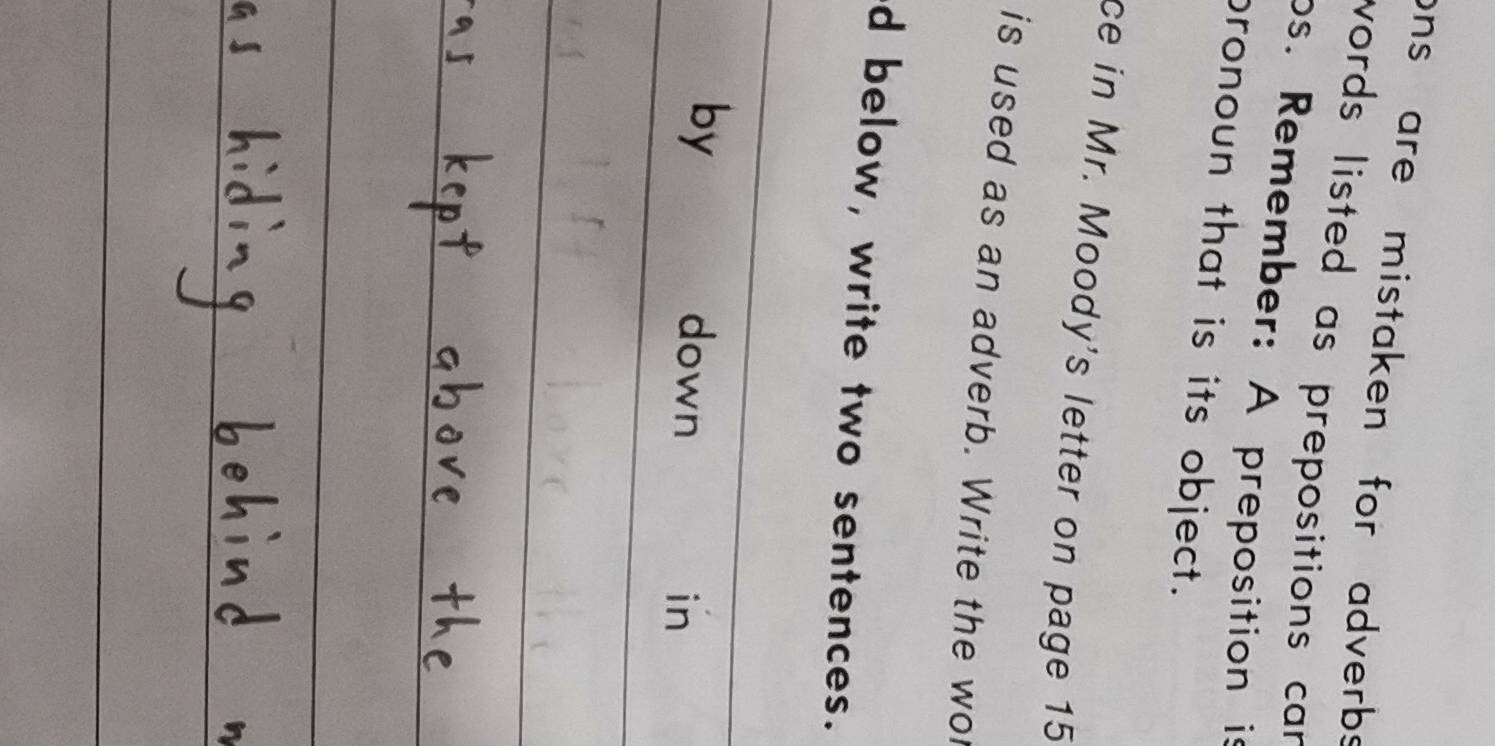 ons are mistaken for adverbs
words listed as prepositions can
os. Remember: A preposition is
pronoun that is its object.
ce in Mr. Moody's letter on page 15
is used as an adverb. Write the wor
d below, write two sentences.
by down in
above the
as kept above the
as hiding behind